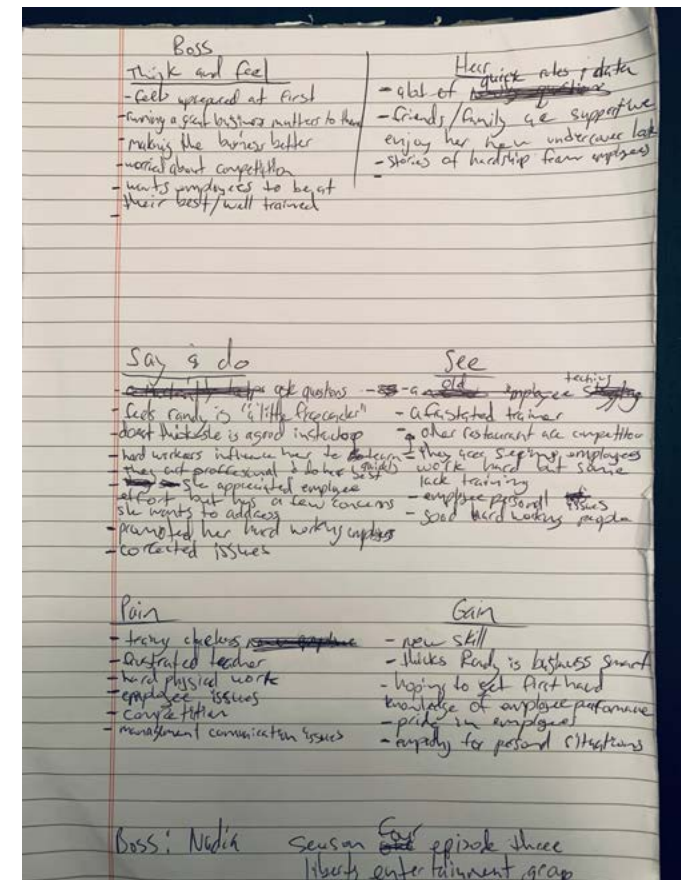 Boss
Think and feel
- feels unprepared at first
- running a great business matters to them
- making the business better
- worried about competition
- wants employees to be at
their best/well trained
-
Hear
- alot of quick rules & data
- friends/family are supportive
enjoy her new undercover look
- stories of hardship from employees
-
Say & do
ask questions
- feels randy is "a little freeloader"
- doesnt think she is a good instructor
- hard workers influence her to learn
- they act proffesional & do her best
quickly
she appreciated employee
effort but has a few concerns
she wants to address
- promoted her hard working employees
- corrected issues
See
- a old employee teaching
- a frustrated trainer
- other restaurant are competitor
- they are seeing employees
work hard but some
lack training
- employee personal issues
- good hard working people
Pain
- training clueless
- frustrated teacher
- hard physical work
- employee issues
- competition
- management comunication issues
Gain
- new skill
- thinks Randy is business smart
- hoping to get first hand
knowledge of employee performance
- pride in employees
- empathy for personal situations
Boss: Nadia season four episode three
liberty entertainment group